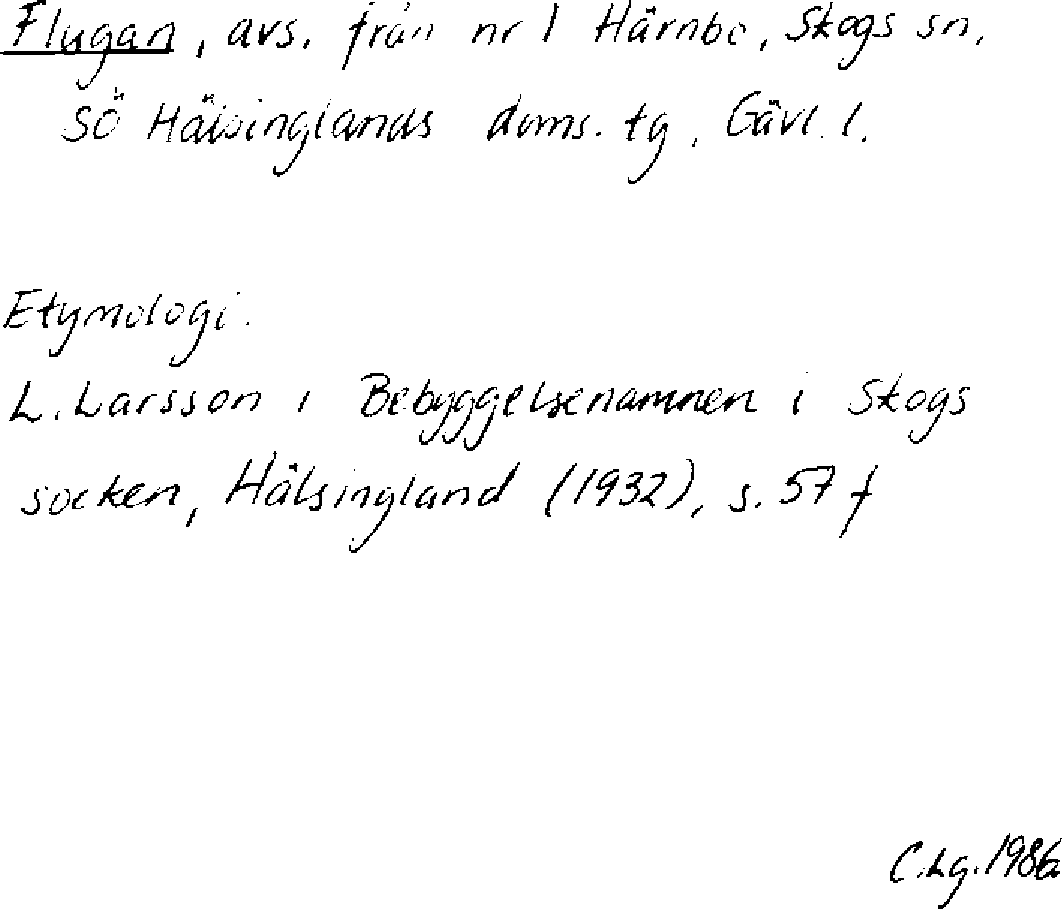 Flugan, avs. från nr 1 Härnbo, Skogs sn,
SÖ Hälsinglands doms. tg, Gävl. l.
Etymologi.
L. Larsson i Bebyggelsenamnen i Skogs
socken, Hälsingland (1932), s. 57 f
C.Lg. 1986